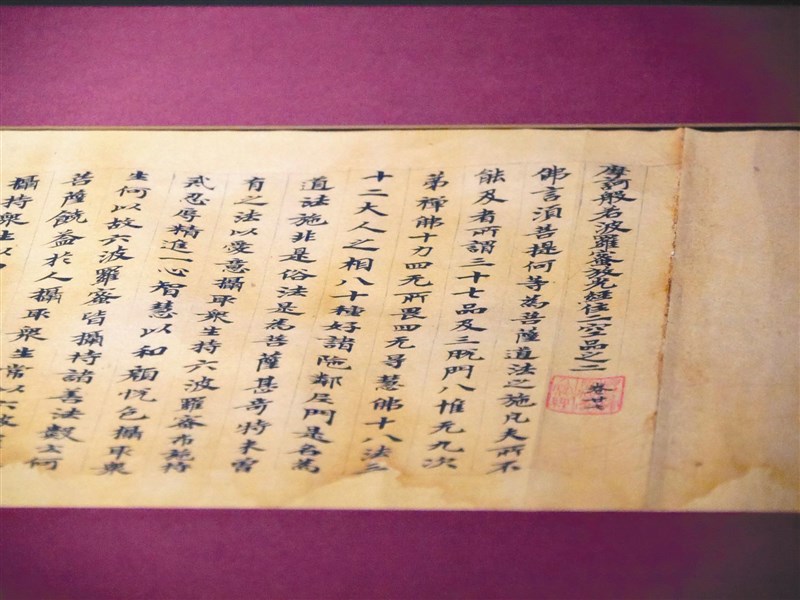 摩訶般若波羅蜜放光經住二空品之二
卷廿七
佛言須菩提何等為菩薩道法之施凡夫所不
能及者所謂三十七品及三脫門八惟无九次
第禪佛十力四无所畏四无㝵慧佛十八法三
十二大人之相八十種好諸陁鄰尼門是名為
道法施非是俗法是為菩薩甚奇特未曾
有之法以愛意攝取眾生持六波羅蜜布施持
戒忍辱精進一心智慧以和顏悅色攝取眾
生何以故六波羅蜜皆攝持諸善法數云何
菩薩饒益於人攝取眾生常以六波
攝持眾生以